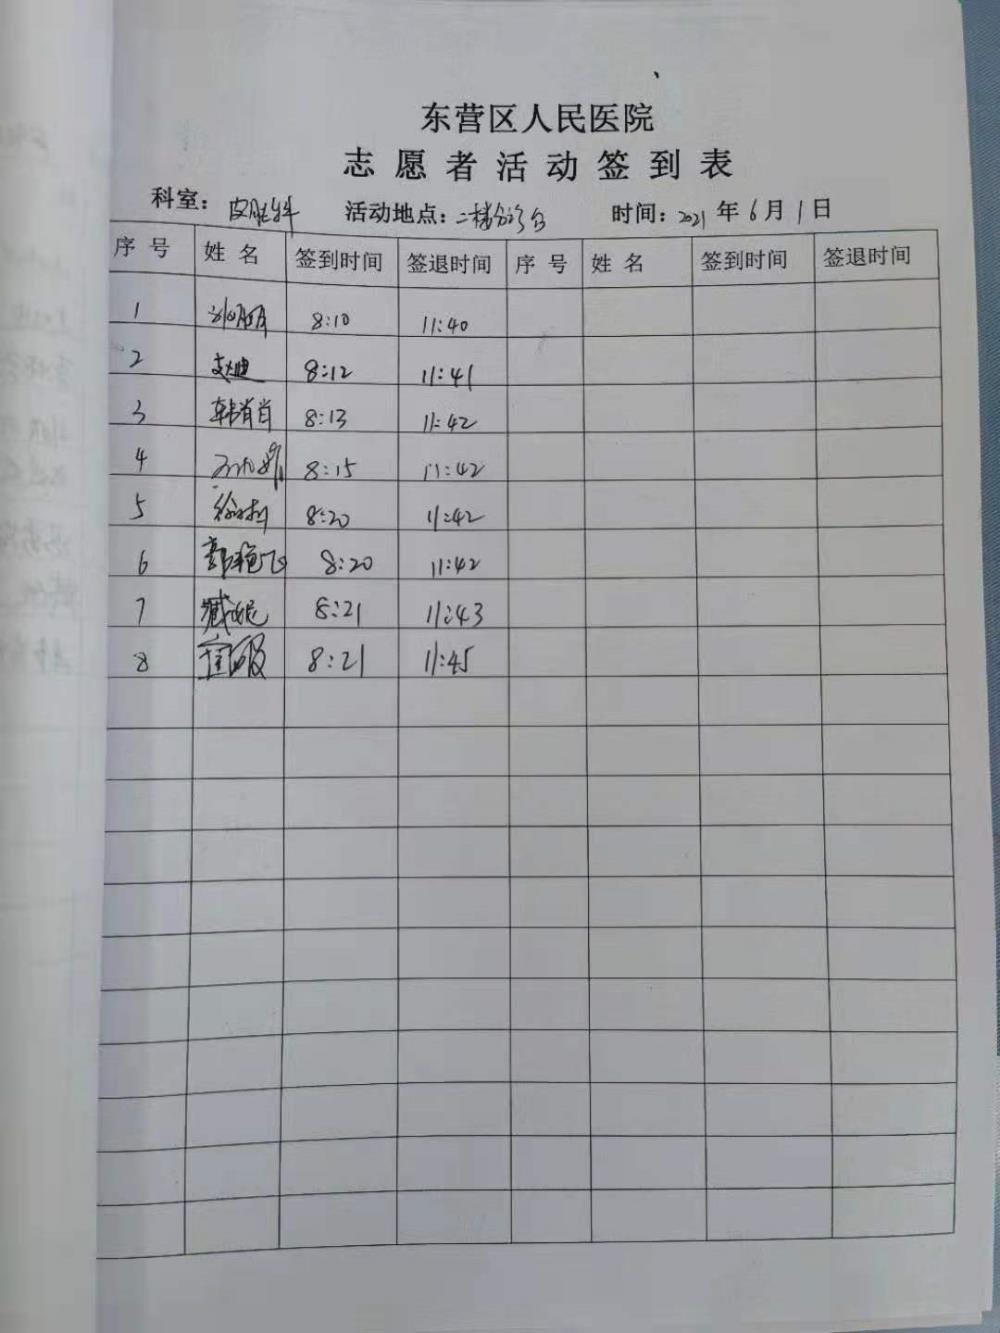 东营区人民医院
志愿者活动签到表
科室：皮肤科 活动地点：二楼分诊台 时间：2021年6月1日
序号 姓名 签到时间 签退时间 序号 姓名 签到时间 签退时间
1 8:10 11:40
2 赵迪 8:12 11:41
3 韩肖肖 8:13 11:42
4 8:15 11:42
5 8:20 11:42
6 郭艳飞 8:20 11:42
7 臧妮 8:21 11:43
8 8:21 11:45